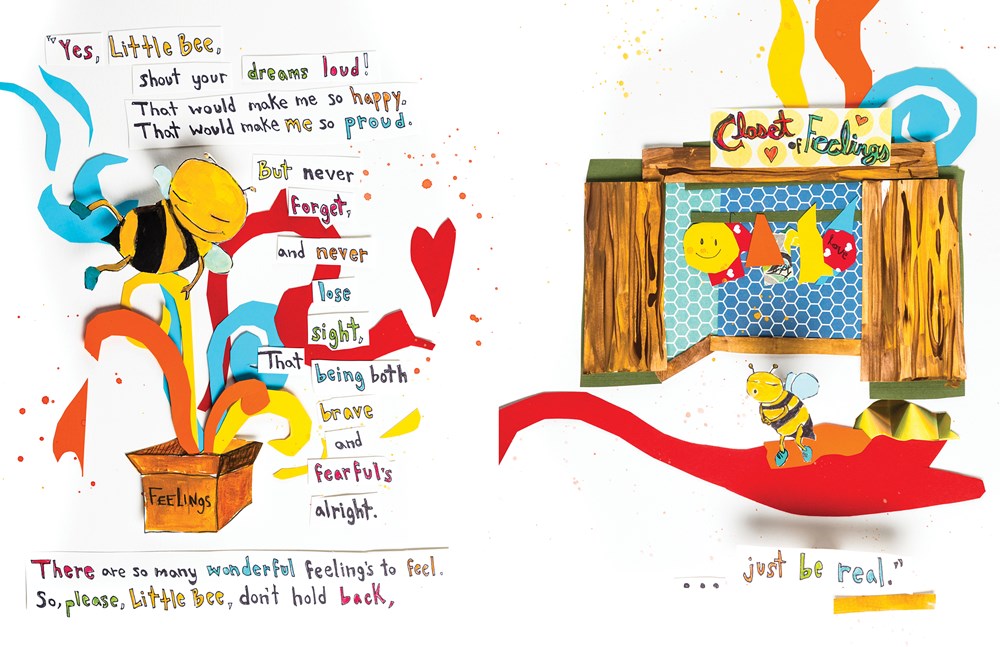 "Yes, Little Bee,
shout your dreams loud!
That would make me so happy.
That would make me so proud.
But never
forget,
and never
lose
sight,
That being both
brave
and
fearful's
alright.
FEELINGS
There are so many wonderful feeling's to feel.
So, please, Little Bee, don't hold back,
Closet of Feelings
Love
... just be real."